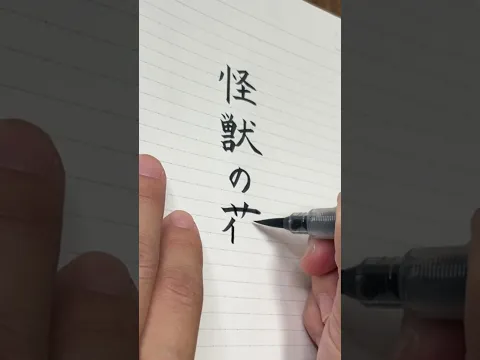 怪獣の